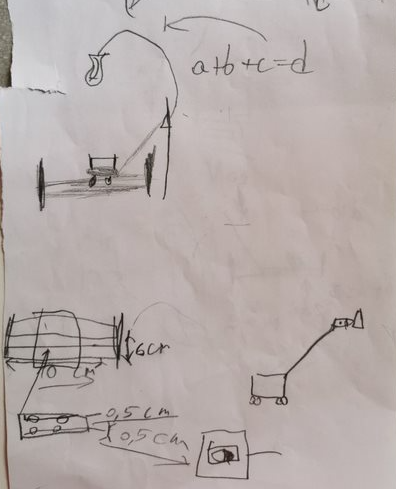 a+b+c=d
6cm
10 cm
0,5cm
0,5cm